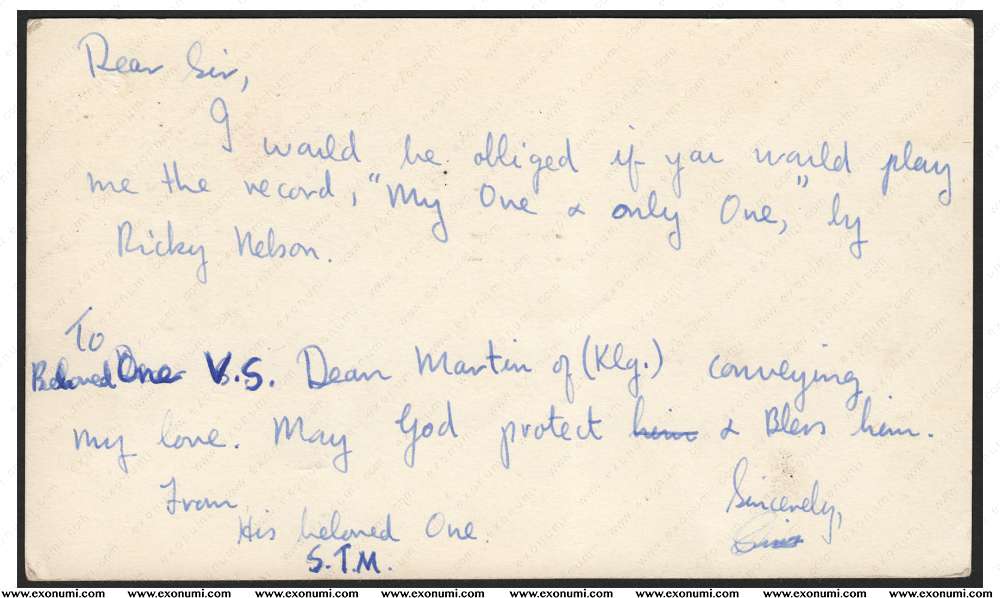 Dear Sir,
I would be obliged if you would play
me the record, "My One & only One," by
Ricky Nelson.
To
Beloved One V.S. Dean Martin of (Klg.) conveying
my love. May God protect him & Bless him.
From
His beloved One.
S.T.M.
Sincerely,
www.exonumi.com www.exonumi.com www.exonumi.com www.exonumi.com www.exonumi.com www.exonumi.com www.exonumi.com www.exonumi.com